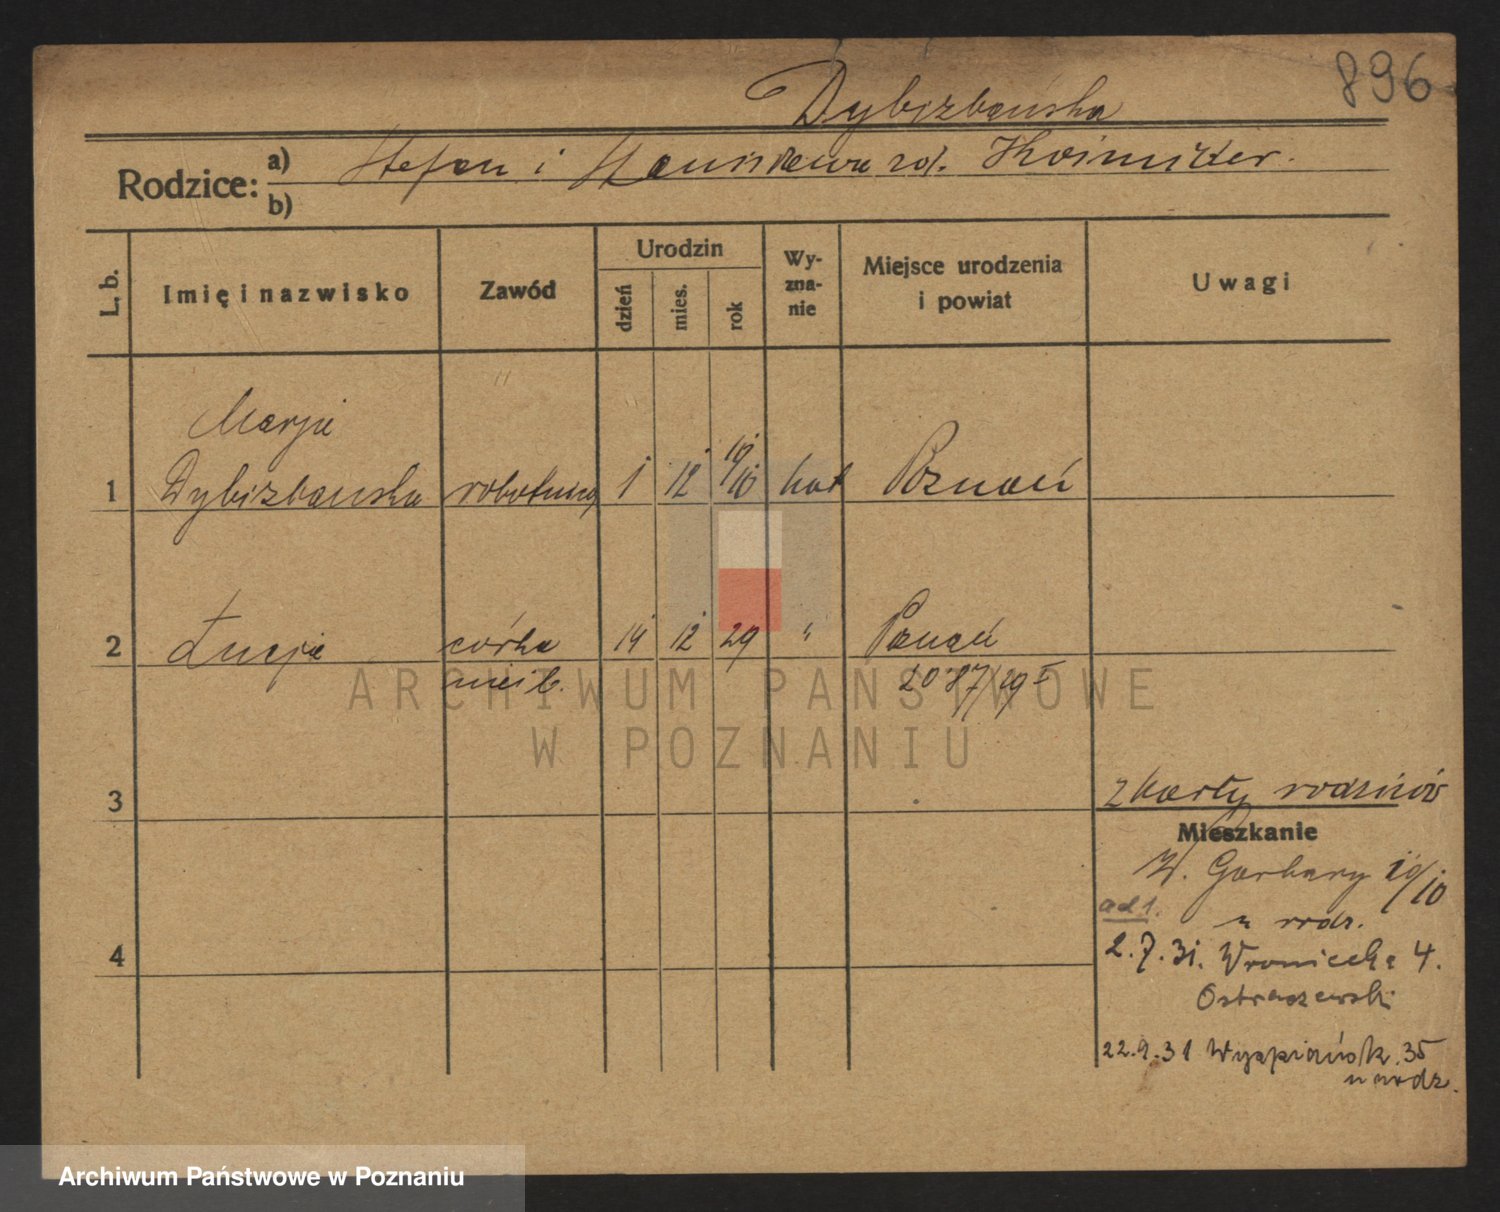 896
Dybizbańska
Rodzice: a) Stefan i
b)
L. b. Imię i nazwisko Zawód Urodzin dzień mies. rok Wyznanie Miejsce urodzenia i powiat Uwagi
Marja
1 Dybizbańska 1 12 1910 kat Poznań
2 Łucja córka 14 12 29 " Poznań
nieśl. 2087/29 I
ARCHIWUM PAŃSTWOWE
W POZNANIU
3 z karty rodziców
Mieszkanie
W. Garbary 10/10
ad 1. u rodz.
4 2.7.31. Wroniecka 4.
Ostraszewski
22.9.31 Wyspiańsk. 35
u rodz.
Archiwum Państwowe w Poznaniu